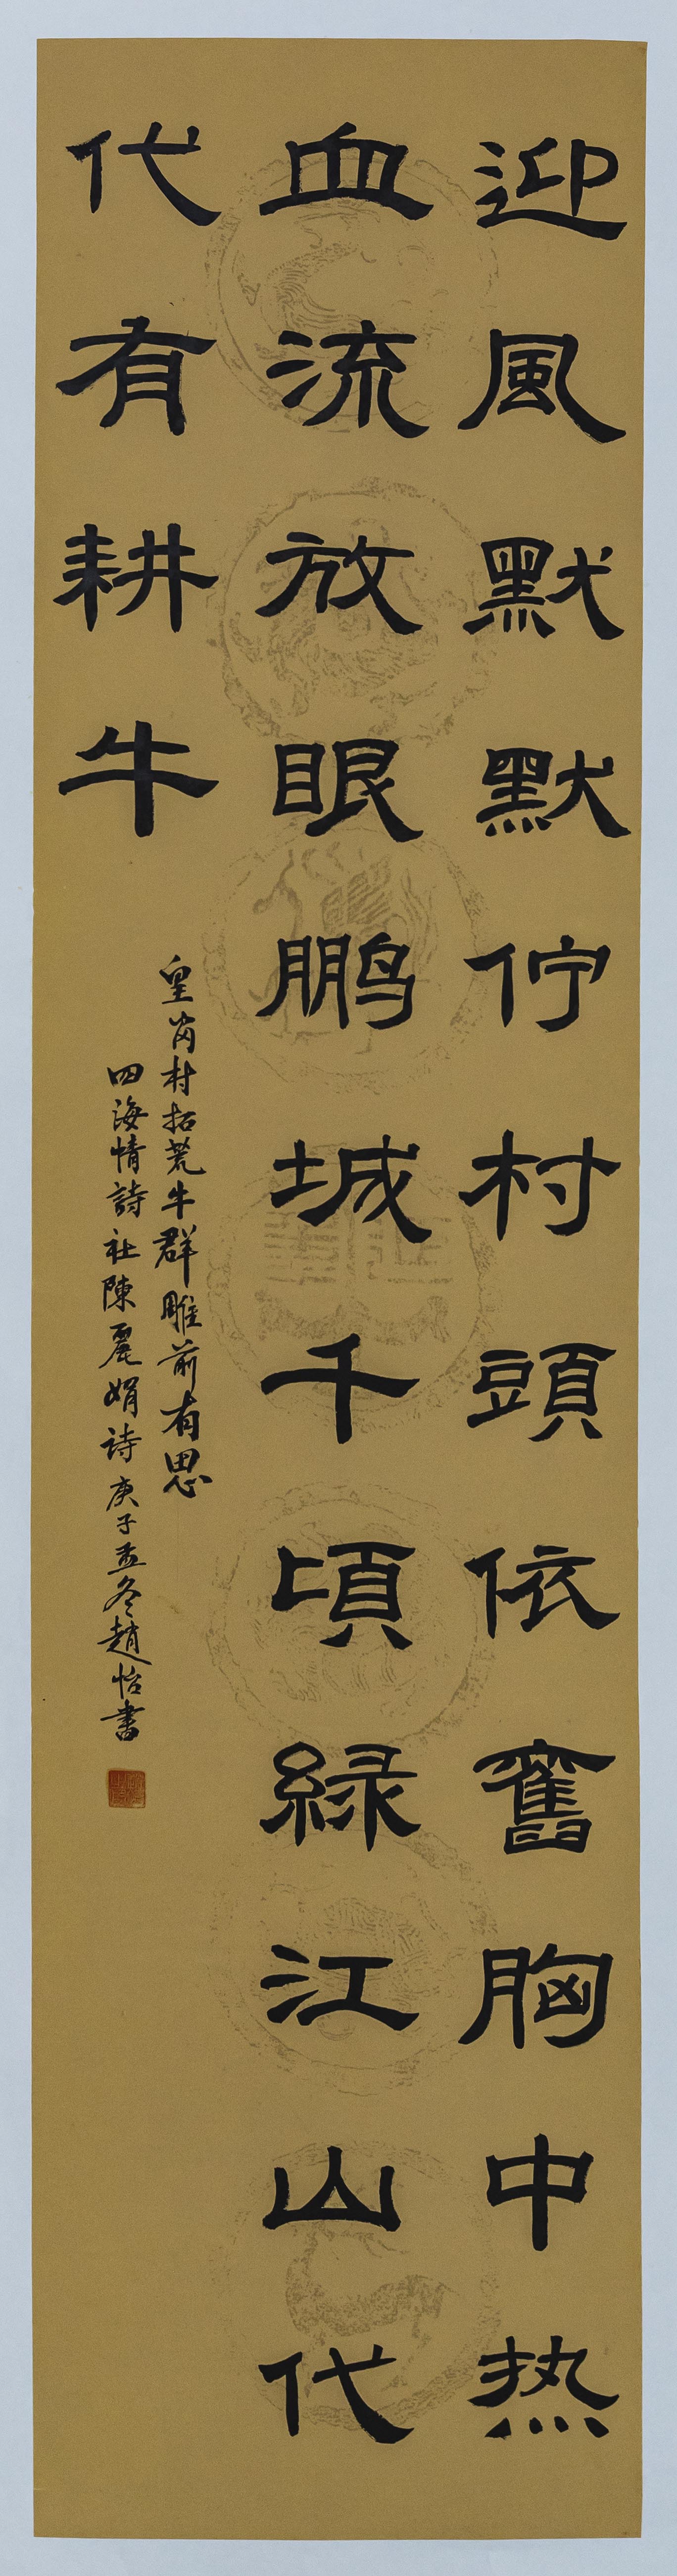 迎風默默佇村頭依舊胸中热
血流放眼鹏城千頃緑江山代
代有耕牛
皇岗村拓荒牛群雕前有思
四海情詩社陳麗娟诗庚子孟冬趙怡書